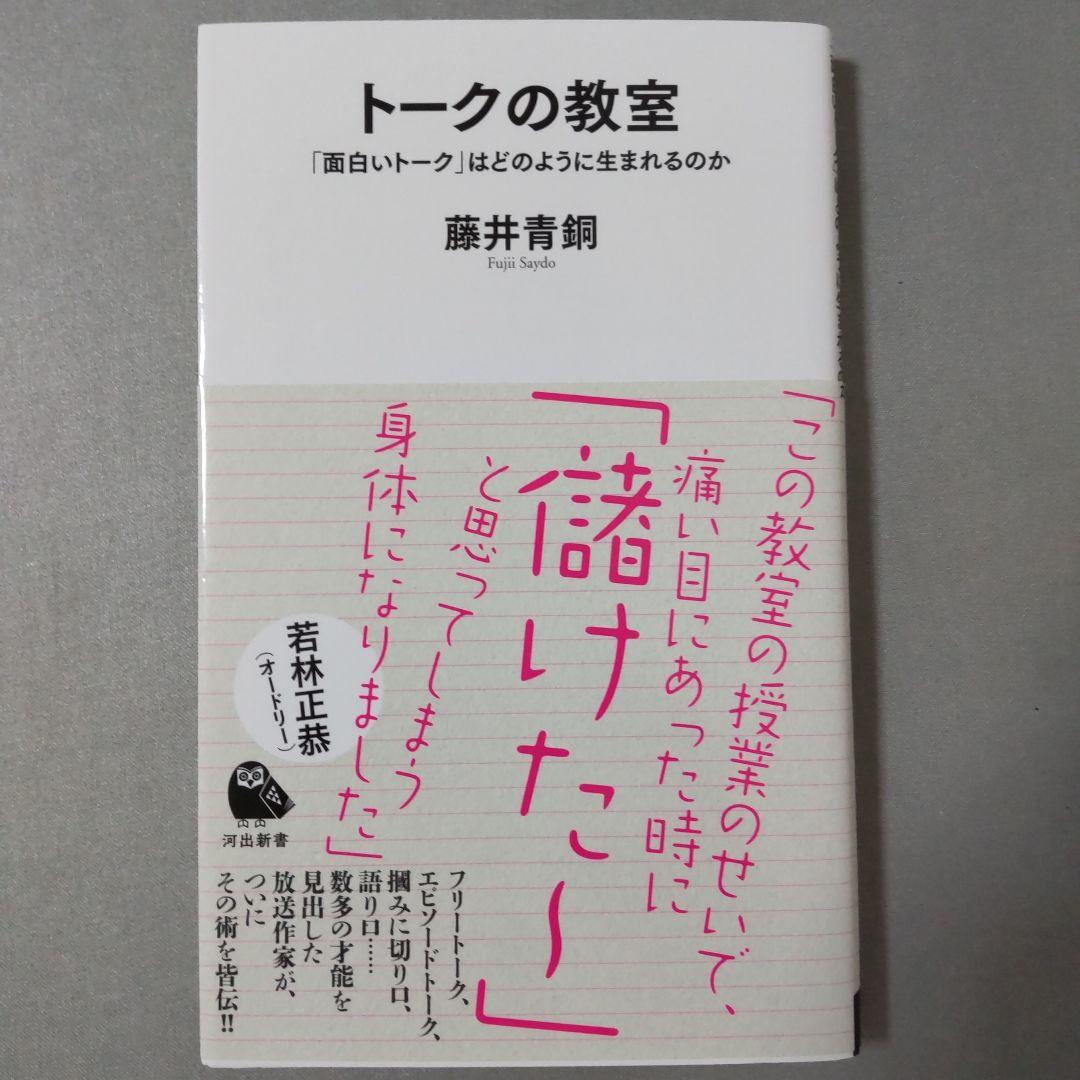 トークの教室
「面白いトーク」はどのように生まれるのか
藤井青銅
Fujii Saydo
「この教室の授業のせいで、
痛い目にあった時に
「儲けた〜」
と思ってしまう
身体になりました」
若林正恭
（オードリー）
河出新書
フリートーク、
エピソードトーク、
摑みに切り口、
語り口……
数多の才能を
見出した
放送作家が、
ついに
その術を皆伝!!